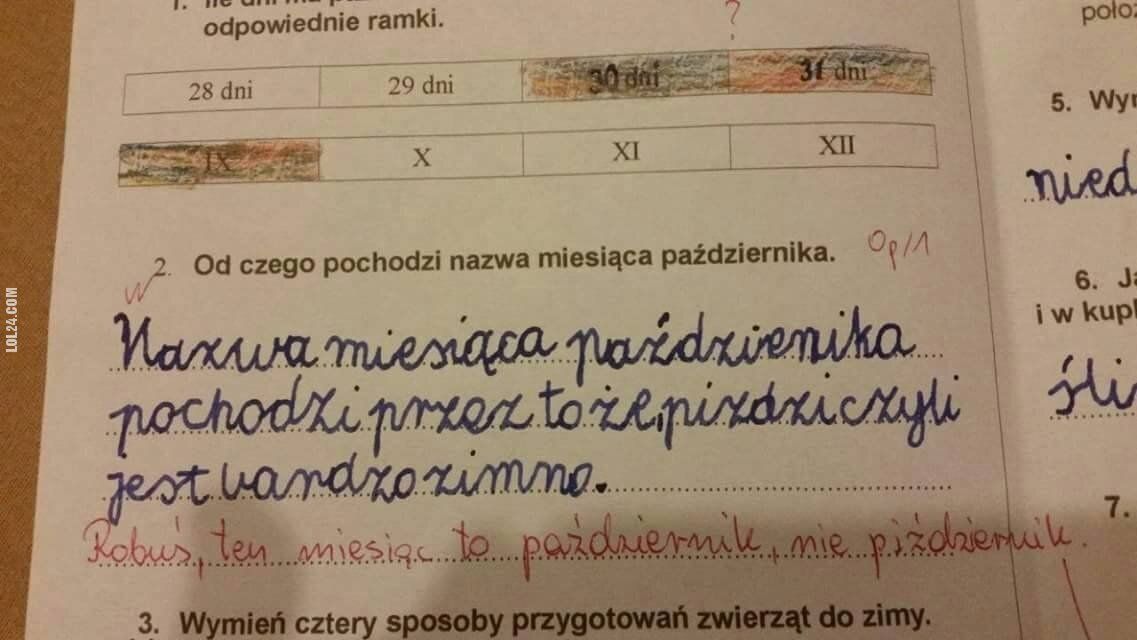 odpowiednie ramki.
?
28 dni 29 dni 30 dni 31 dni
IX X XI XII
2. Od czego pochodzi nazwa miesiąca października. 0p/1
Nazwa miesiąca paździenika
pochodzi przez to że, pizdzi czyli
jest bandzo zimno.
Robuś, ten miesiąc to październik, nie piździernik.
3. Wymień cztery sposoby przygotowań zwierząt do zimy.
5.
nied
6.
i w
śli
7.
LOL24.COM